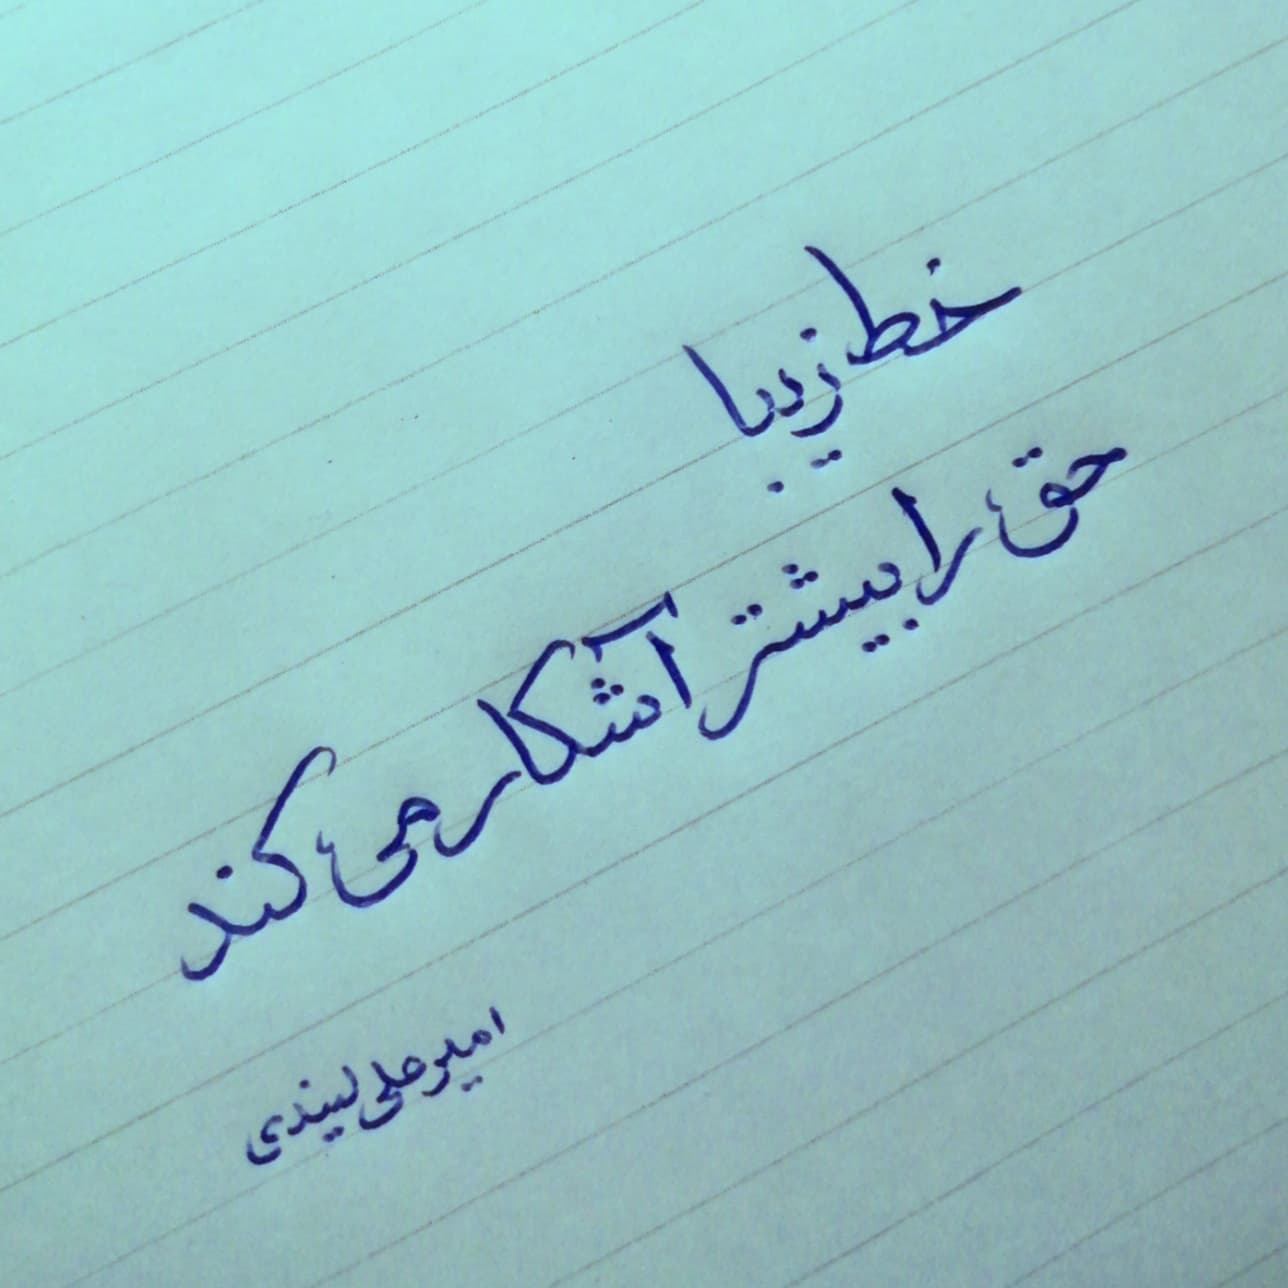 خط زیبا
حق را بیشتر آشکار می کند
امیرعلی لیندی